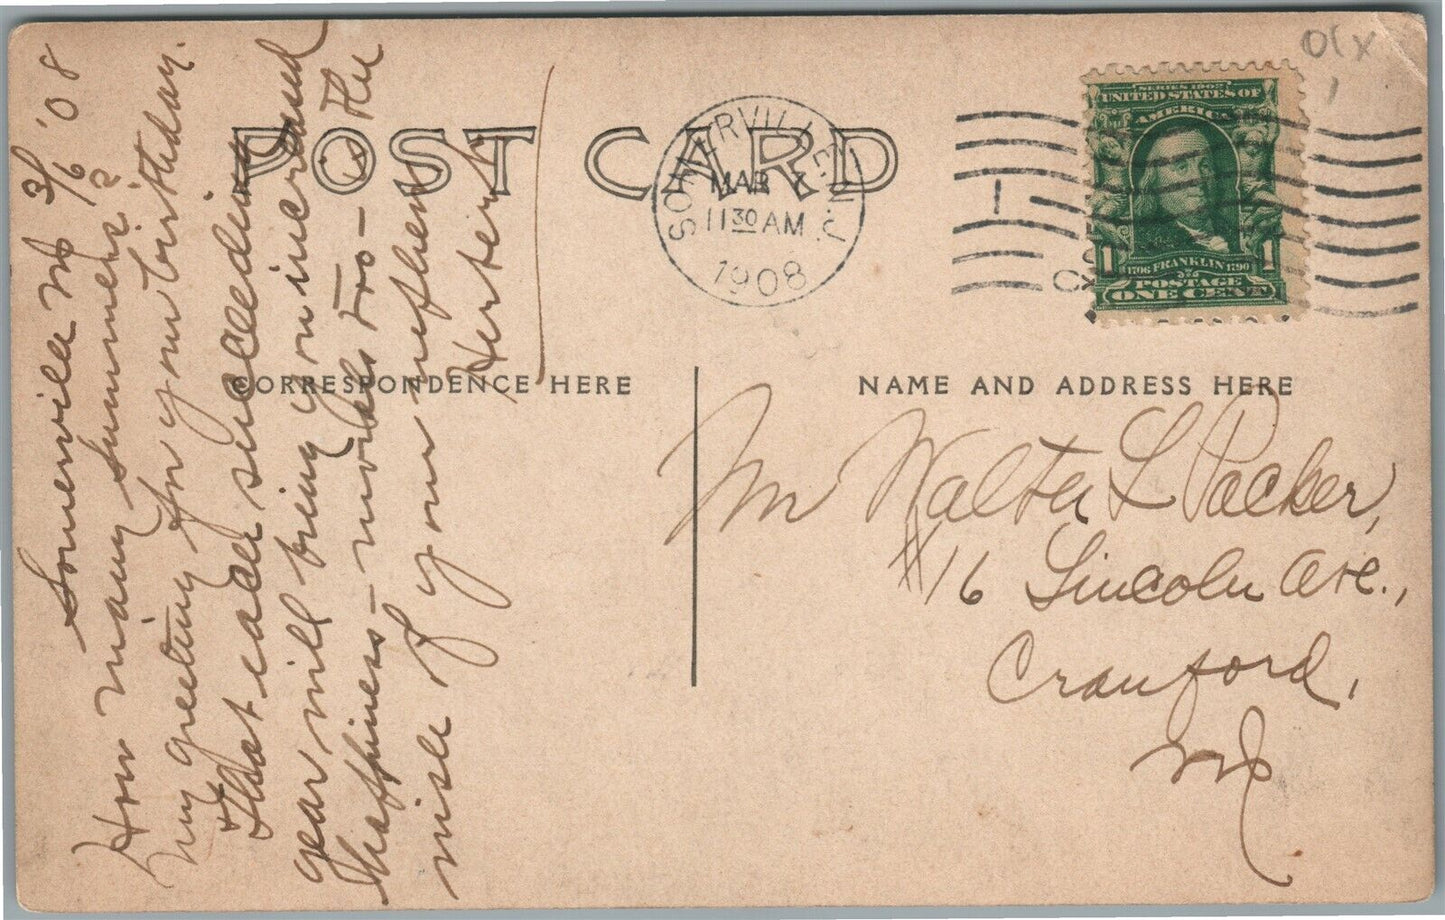 POST CARD
SOMERVILLE, N.J.
MAR 7
11 30 AM
1908
1
SERIES 1902
UNITED STATES OF
AMERICA
1 1
1706 FRANKLIN 1790
POSTAGE
ONE CENT
CORRESPONDENCE HERE
NAME AND ADDRESS HERE
Somerville NJ 3/6 '08
How many summers?
My greeting for your birthday.
& that each succeeding
year will bring you increased
happiness - makes two - is the
wish of your
Herbert
Mr Walter L Packer,
#16 Lincoln Ave.,
Cranford,
NJ.